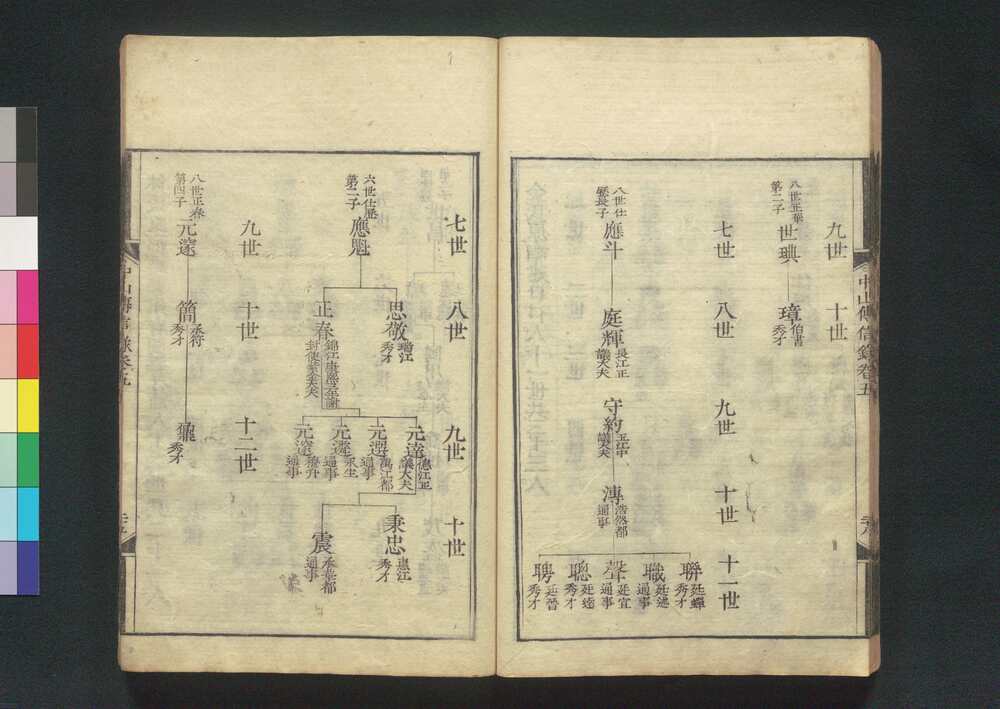 九世
十世
八世正華
第二子
世興
璋
伯書
秀才
七世
八世
九世
十世
十一世
八世仕
長子
應斗
庭輝
長江正
議大夫
守約
玉甲
議大夫
溥
浩然都
通事
聯
廷蟬
秀才
職
廷述
通事
聲
廷宜
通事
聰
廷逵
秀才
聘
廷晉
秀才
中山傳信錄卷五
七世
八世
九世
十世
第二子
應魁
思敬
秀才
正春
錦江
元達
德江正
議大夫
元選
萬江都
通事
元
永生
通事
元
積升
通事
秉忠
秀才
震
承業都
通事
九世
十世
十二世
八世正春
第四子
元
簡
承符
秀才
秀才
中山傳信錄卷五